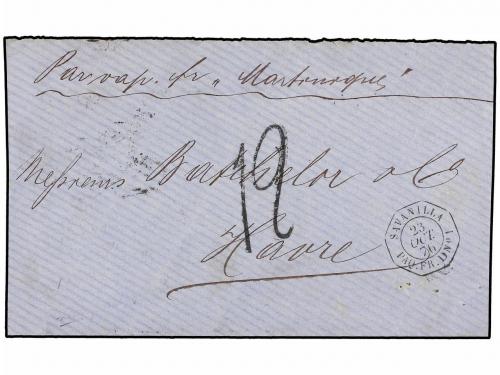 Par vap. fr „Martinique"
Messieurs Batchelor & Co
12
Havre
SAVANILLA
23
OCT.
76
PAQ.FR.D No1